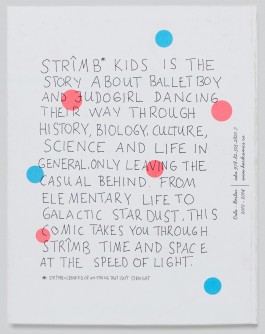 STRÎMB* KIDS IS THE
STORY ABOUT BALLETBOY
AND JUDOGIRL DANCING
THEIR WAY THROUGH
HISTORY, BIOLOGY, CULTURE,
SCIENCE AND LIFE IN
GENERAL. ONLY LEAVING THE
CASUAL BEHIND. FROM
ELEMENTARY LIFE TO
GALACTIC STAR DUST, THIS
COMIC TAKES YOU THROUGH
STRÎMB TIME AND SPACE
AT THE SPEED OF LIGHT.